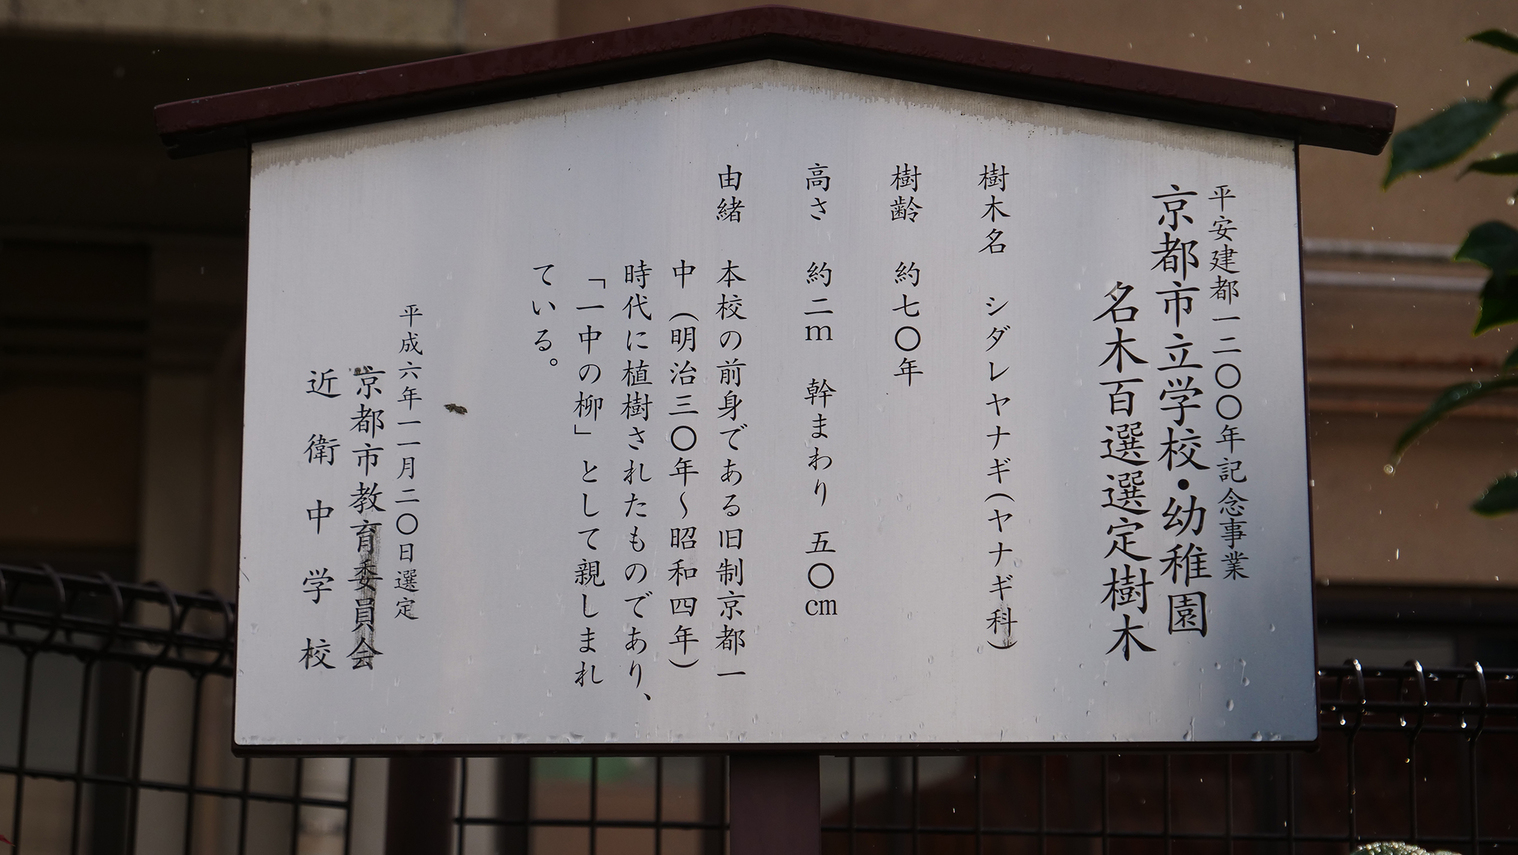 平安建都一二〇〇年記念事業
京都市立学校・幼稚園
名木百選選定樹木
樹木名　シダレヤナギ（ヤナギ科）
樹齢　約七〇年
高さ　約二m　幹まわり　五〇㎝
由緒　本校の前身である旧制京都一
中（明治三〇年～昭和四年）
時代に植樹されたものであり、
「一中の柳」として親しまれ
ている。
平成六年一一月二〇日選定
京都市教育委員会
近衛中学校